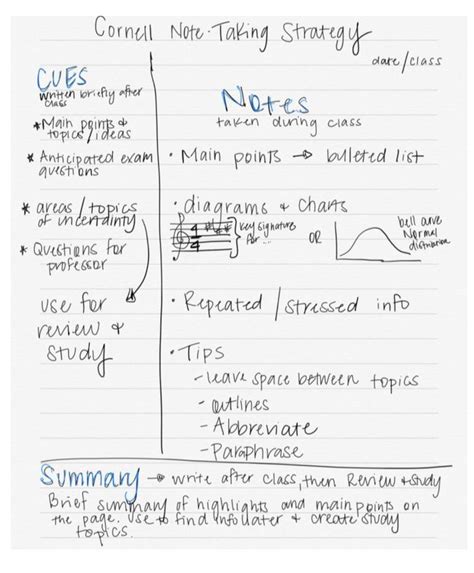 Cornell Note-Taking Strategy
date/class
CUES
written briefly after
class
*Main points &
topics/ideas
* Anticipated exam
questions
* areas/topics
of uncertainty
* Questions for
professor
use for
review &
study
Notes
taken during class
• Main points → bulleted list
• diagrams & charts
4
4
key signature
for...
OR
bell curve
Normal
distribution
• Repeated / stressed info
• Tips
- leave space between topics
- outlines
- Abbreviate
- Paraphrase
Summary → write after class, then Review & study
Brief summary of highlights and main points on
the page. Use to find info later & create study
topics.